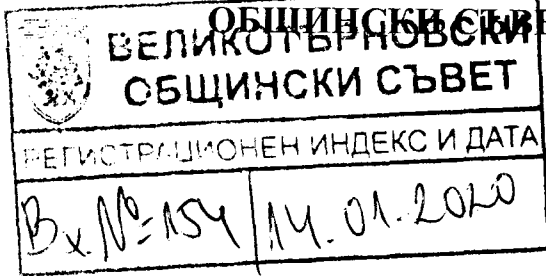 ОБЩИНСКИ СЪВЕ
ВЕЛИКОТЪРНОВСКИ
ОБЩИНСКИ СЪВЕТ
РЕГИСТРАЦИОНЕН ИНДЕКС И ДАТА
Вх. №-154 14.01.2020